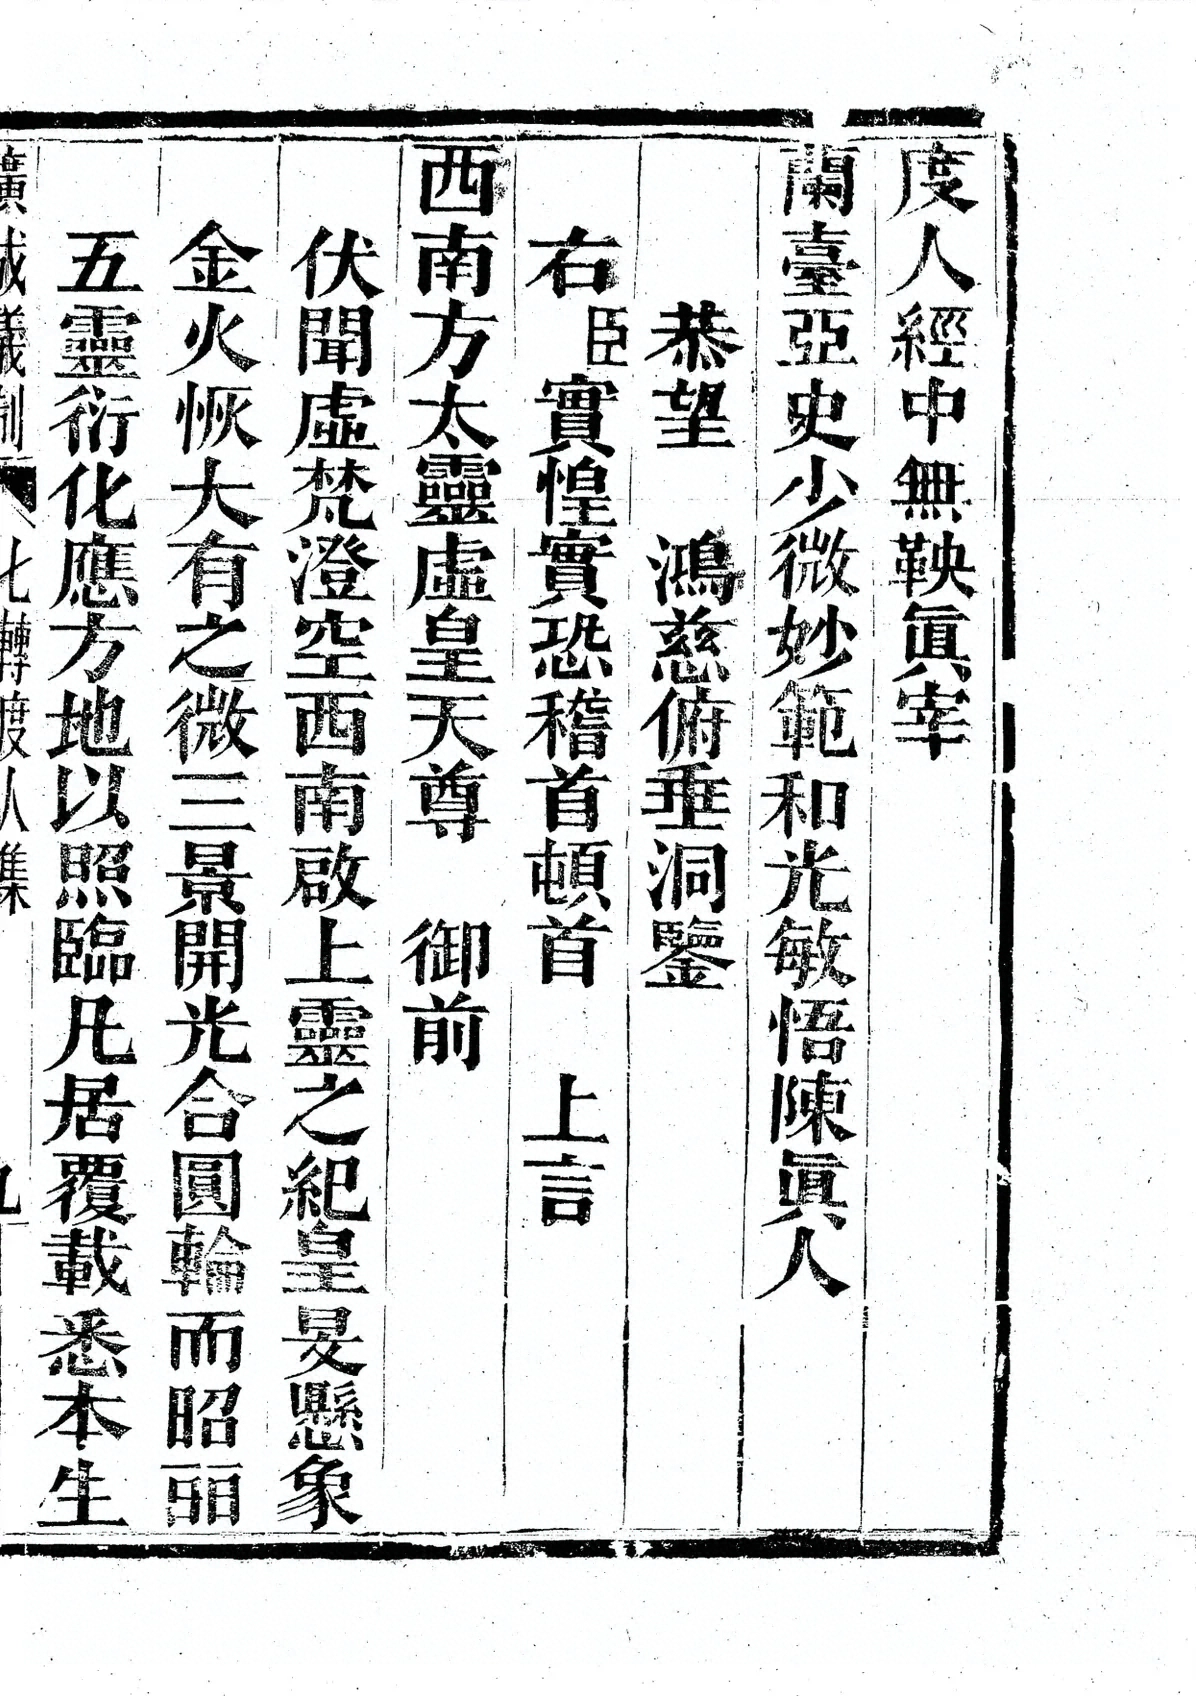 度人經中無鞅眞宰
蘭臺亞史少微妙範和光敏悟陳眞人
恭望 鴻慈俯垂洞鑒
右臣實惶實恐稽首頓首 上言
西南方太靈虛皇天尊 御前
伏聞虛梵澄空西南啟上靈之紀皇旻懸象
金火恢大有之微三景開光合圓輪而昭丽
五靈衍化應方地以照臨凡居覆載悉本生
廣成儀制 九轉度人集 九